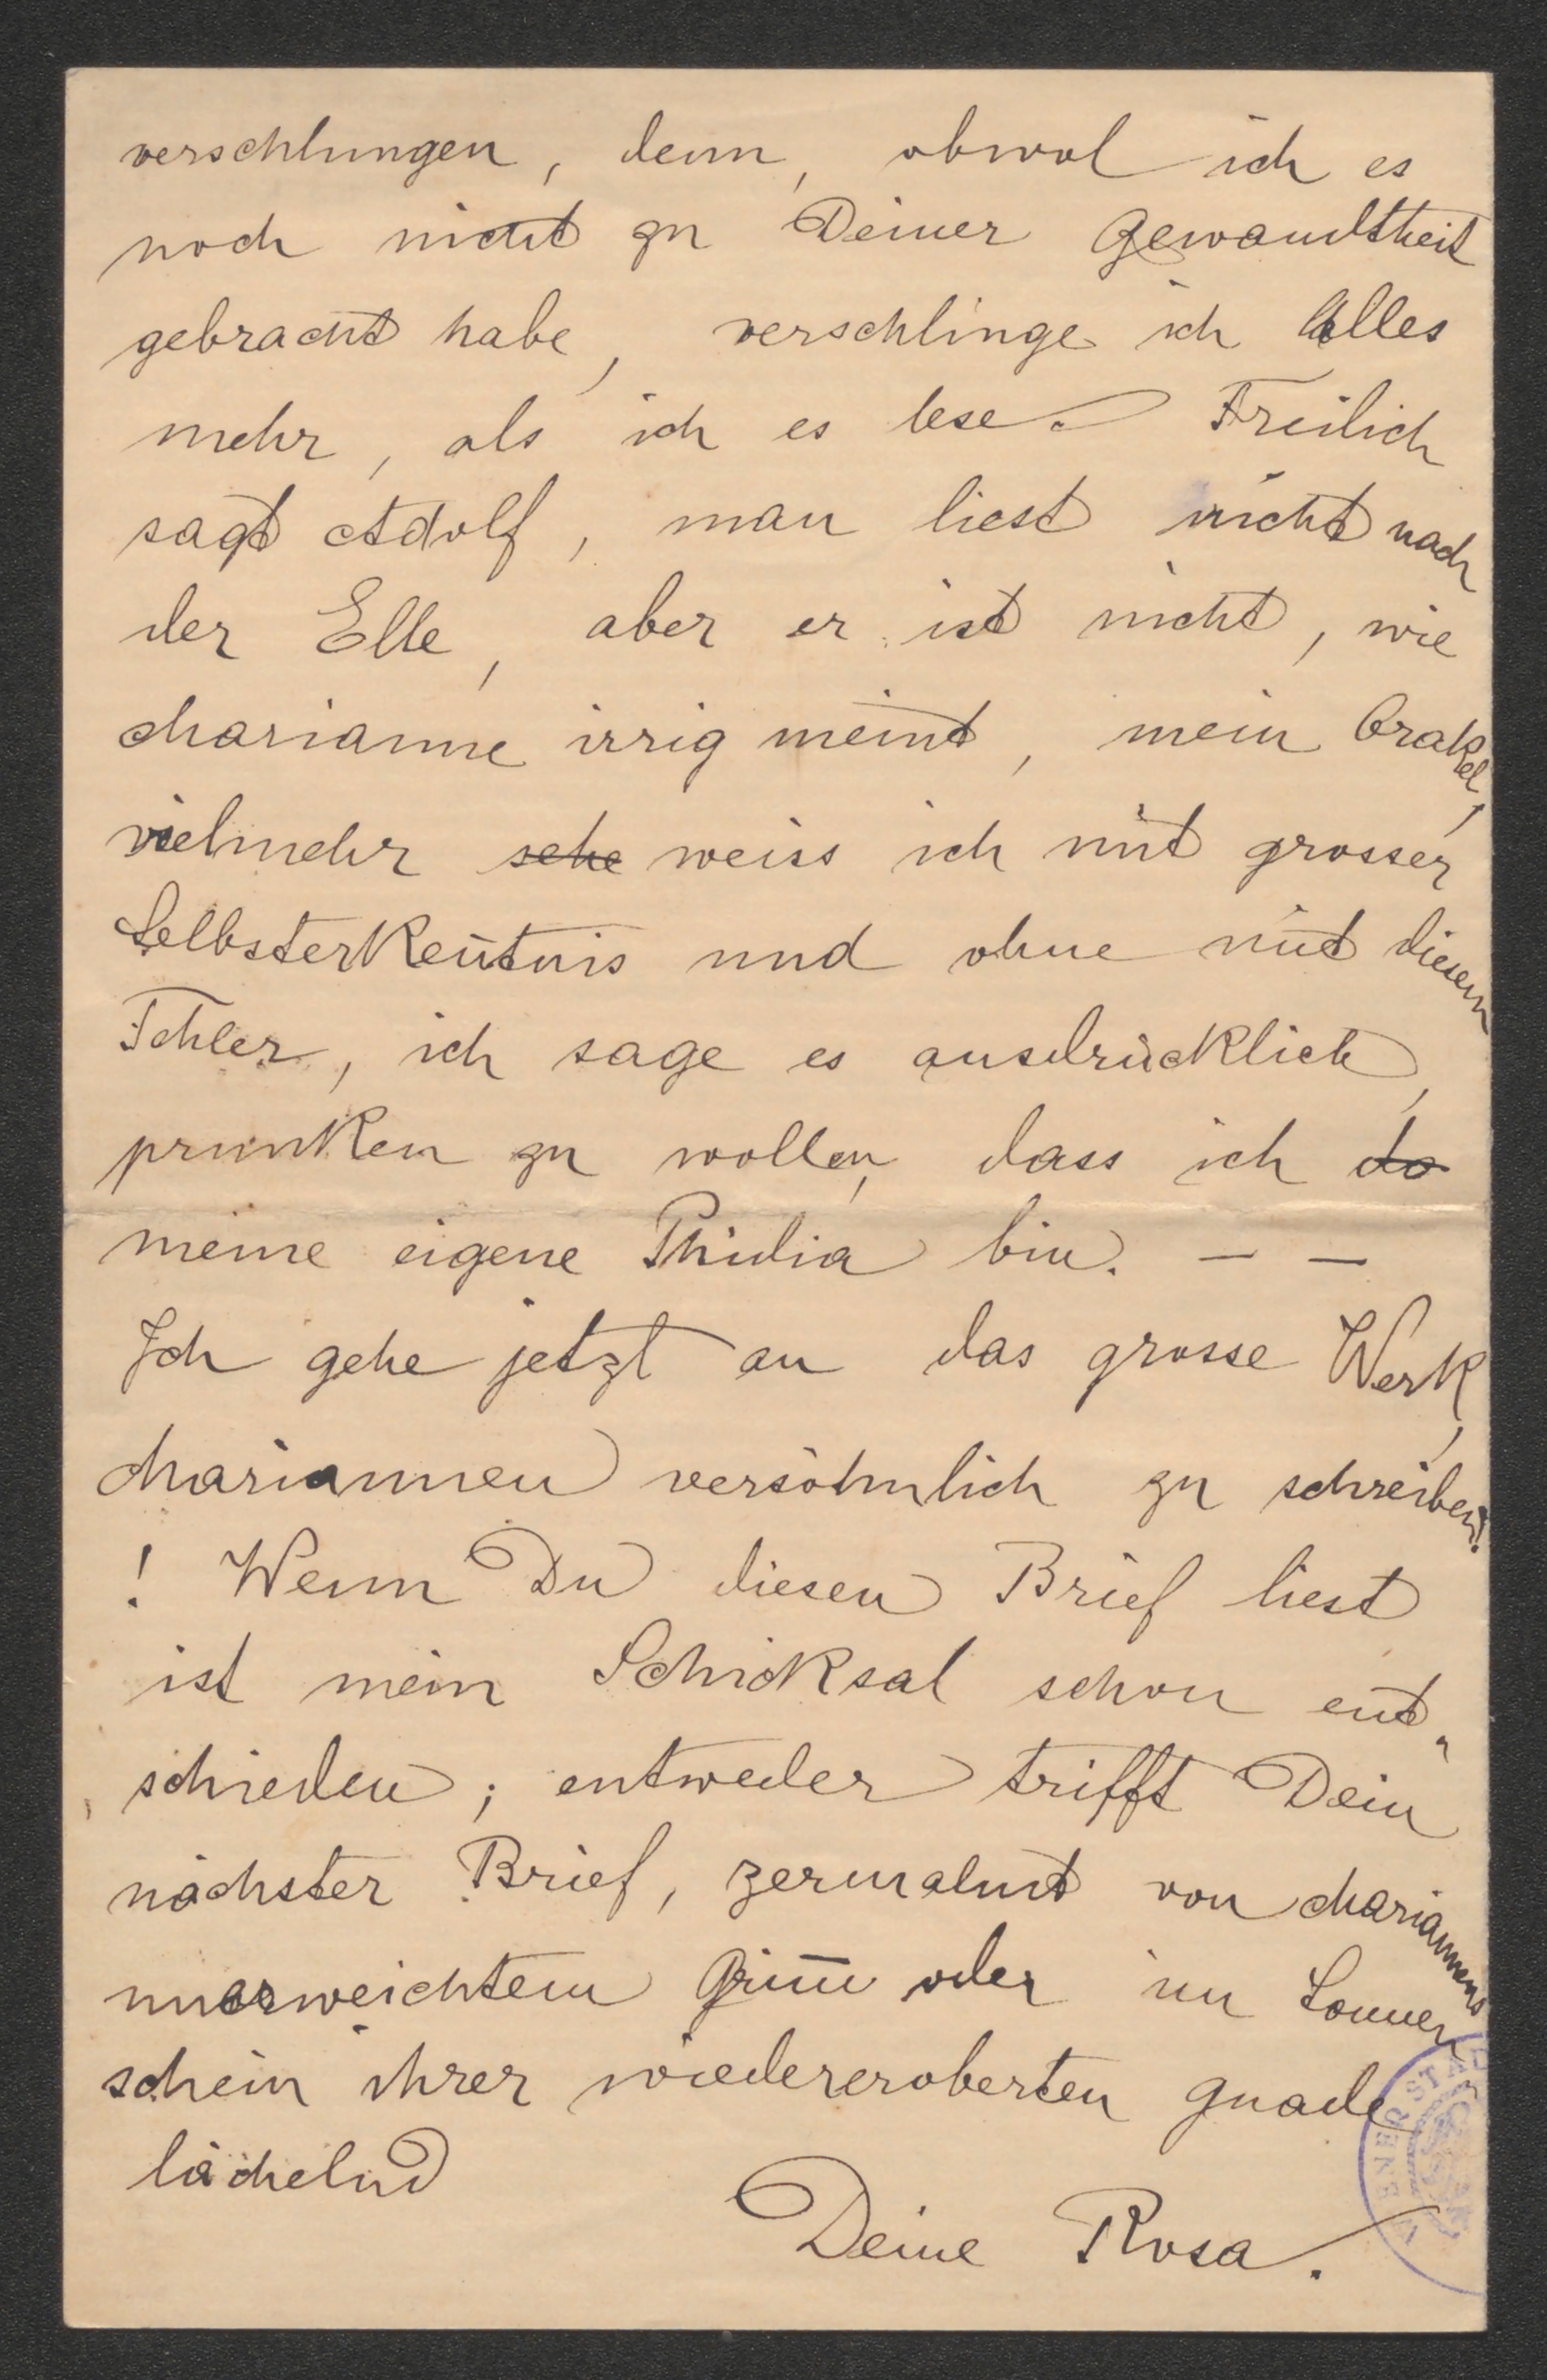 verschlungen, denn, obwol ich es
noch nicht zu Deiner Gewandtheit
gebracht habe, verschlinge ich Alles
mehr, als ich es lese. Freilich
sagt Adolf, man liest nicht nach
der Elle, aber er ist nicht, wie
Marianne irrig meint, mein Orakel,
vielmehr sehe weiss ich mit grosser
Selbsterkeñtnis und ohne mit diesem
Fehler, ich sage es ausdrücklich,
prunken zu wollen, dass ich da
meine eigene Phidia bin. — —
Ich gehe jetzt an das grosse Werk,
Mariannen versöhnlich zu schreiben!
! Wenn Du diesen Brief liest
ist mein Schicksal schon ent-
schieden; entweder trifft Dein
nächster Brief, zermalmt von Mariannens
unerweichtem Grim̄ oder im Sonnen
schein ihrer wiedereroberten Gnade
lächelnd
Deine Rosa.